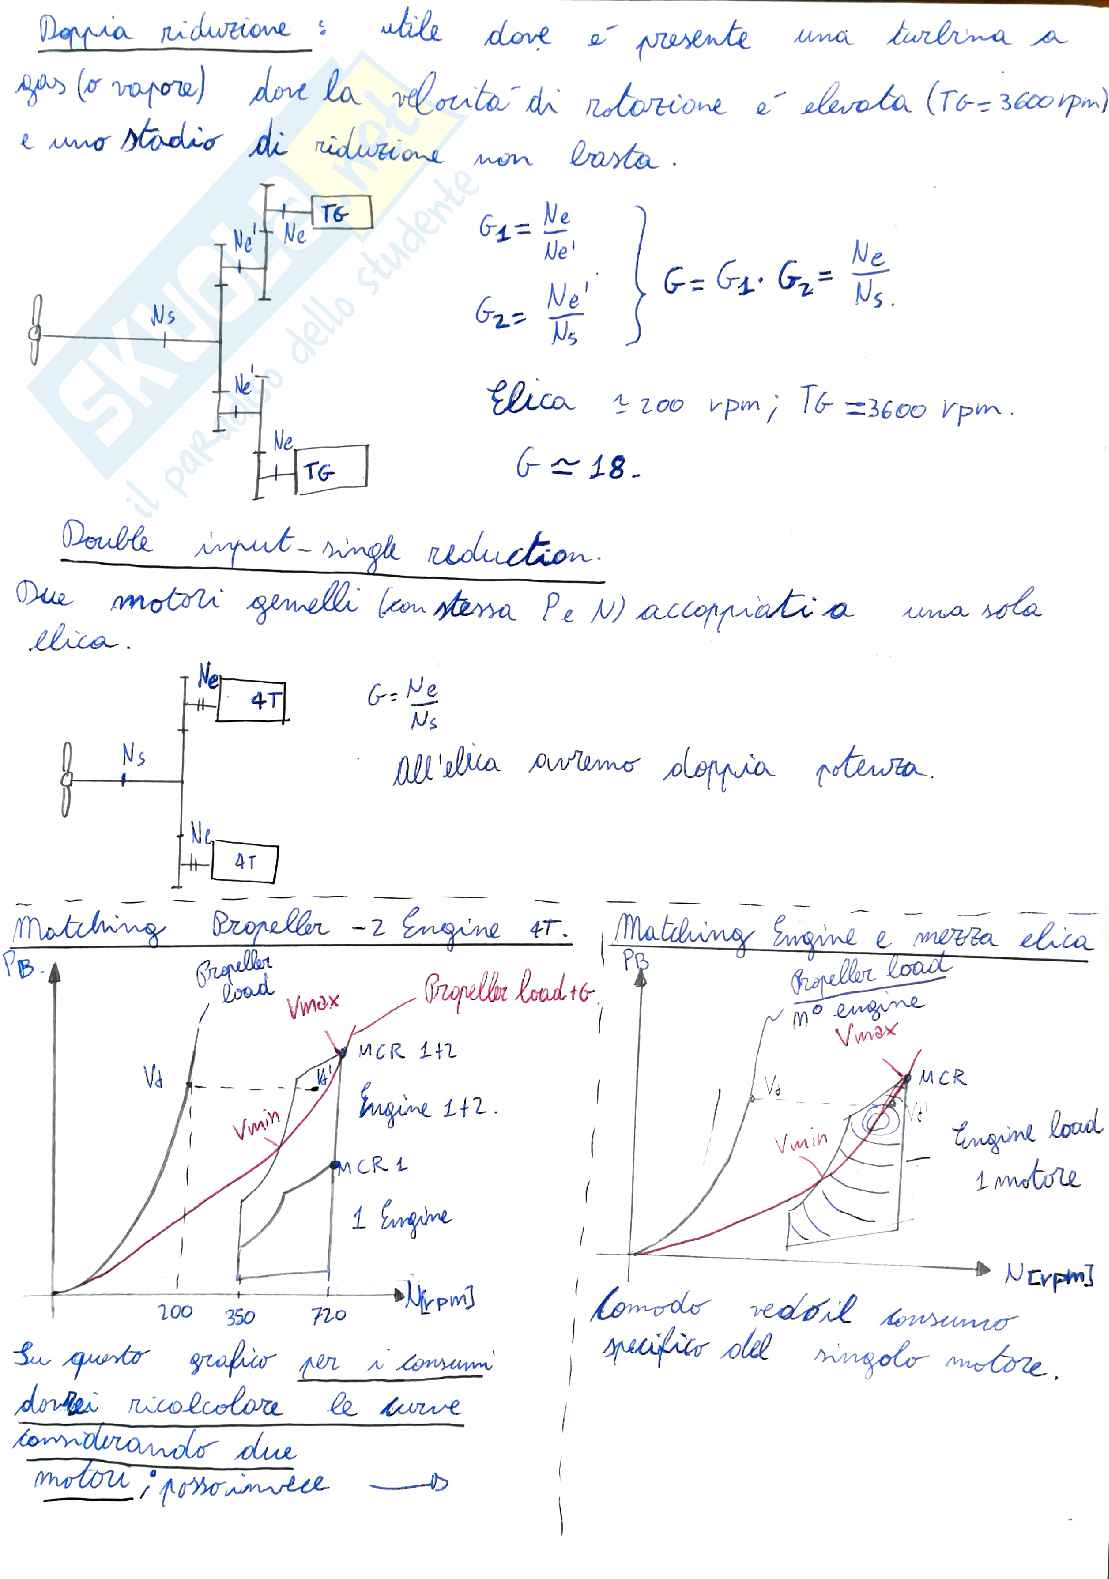 Doppia riduzione : utile dove è presente una turbina a
gas (o vapore) dove la velocità di rotazione è elevata (TG = 3600 rpm)
e uno stadio di riduzione non basta.
TG
Ne
Ne'
Ns
Ne'
Ne
TG
G1 = Ne/Ne'
G2 = Ne'/Ns
G = G1 · G2 = Ne/Ns.
Elica ≃ 200 rpm ; TG = 3600 rpm.
G ≃ 18.
SKUOLA.net
il paradiso dello studente
Double input - single reduction.
Due motori gemelli (con stessa P e N) accoppiati a una sola
elica.
Ne
4T
Ns
Ne
4T
G = Ne/Ns
All'elica avremo doppia potenza.
Matching Propeller - 2 Engine 4T.
PB.
Propeller
load
Vmax
Propeller load + G
MCR 1+2
Vd
Vd'
Engine 1+2.
Vmin
MCR 1
1 Engine
200
350
720
N[rpm]
Su questo grafico per i consumi
dovrei ricalcolare le curve
considerando due
motori ; posso invece
Matching Engine e mezza elica
PB
Propeller load
n° engine
Vmax
MCR
Vd
Vd'
Vmin
Engine load
1 motore
N [rpm]
Comodo vedo il consumo
specifico del singolo motore.